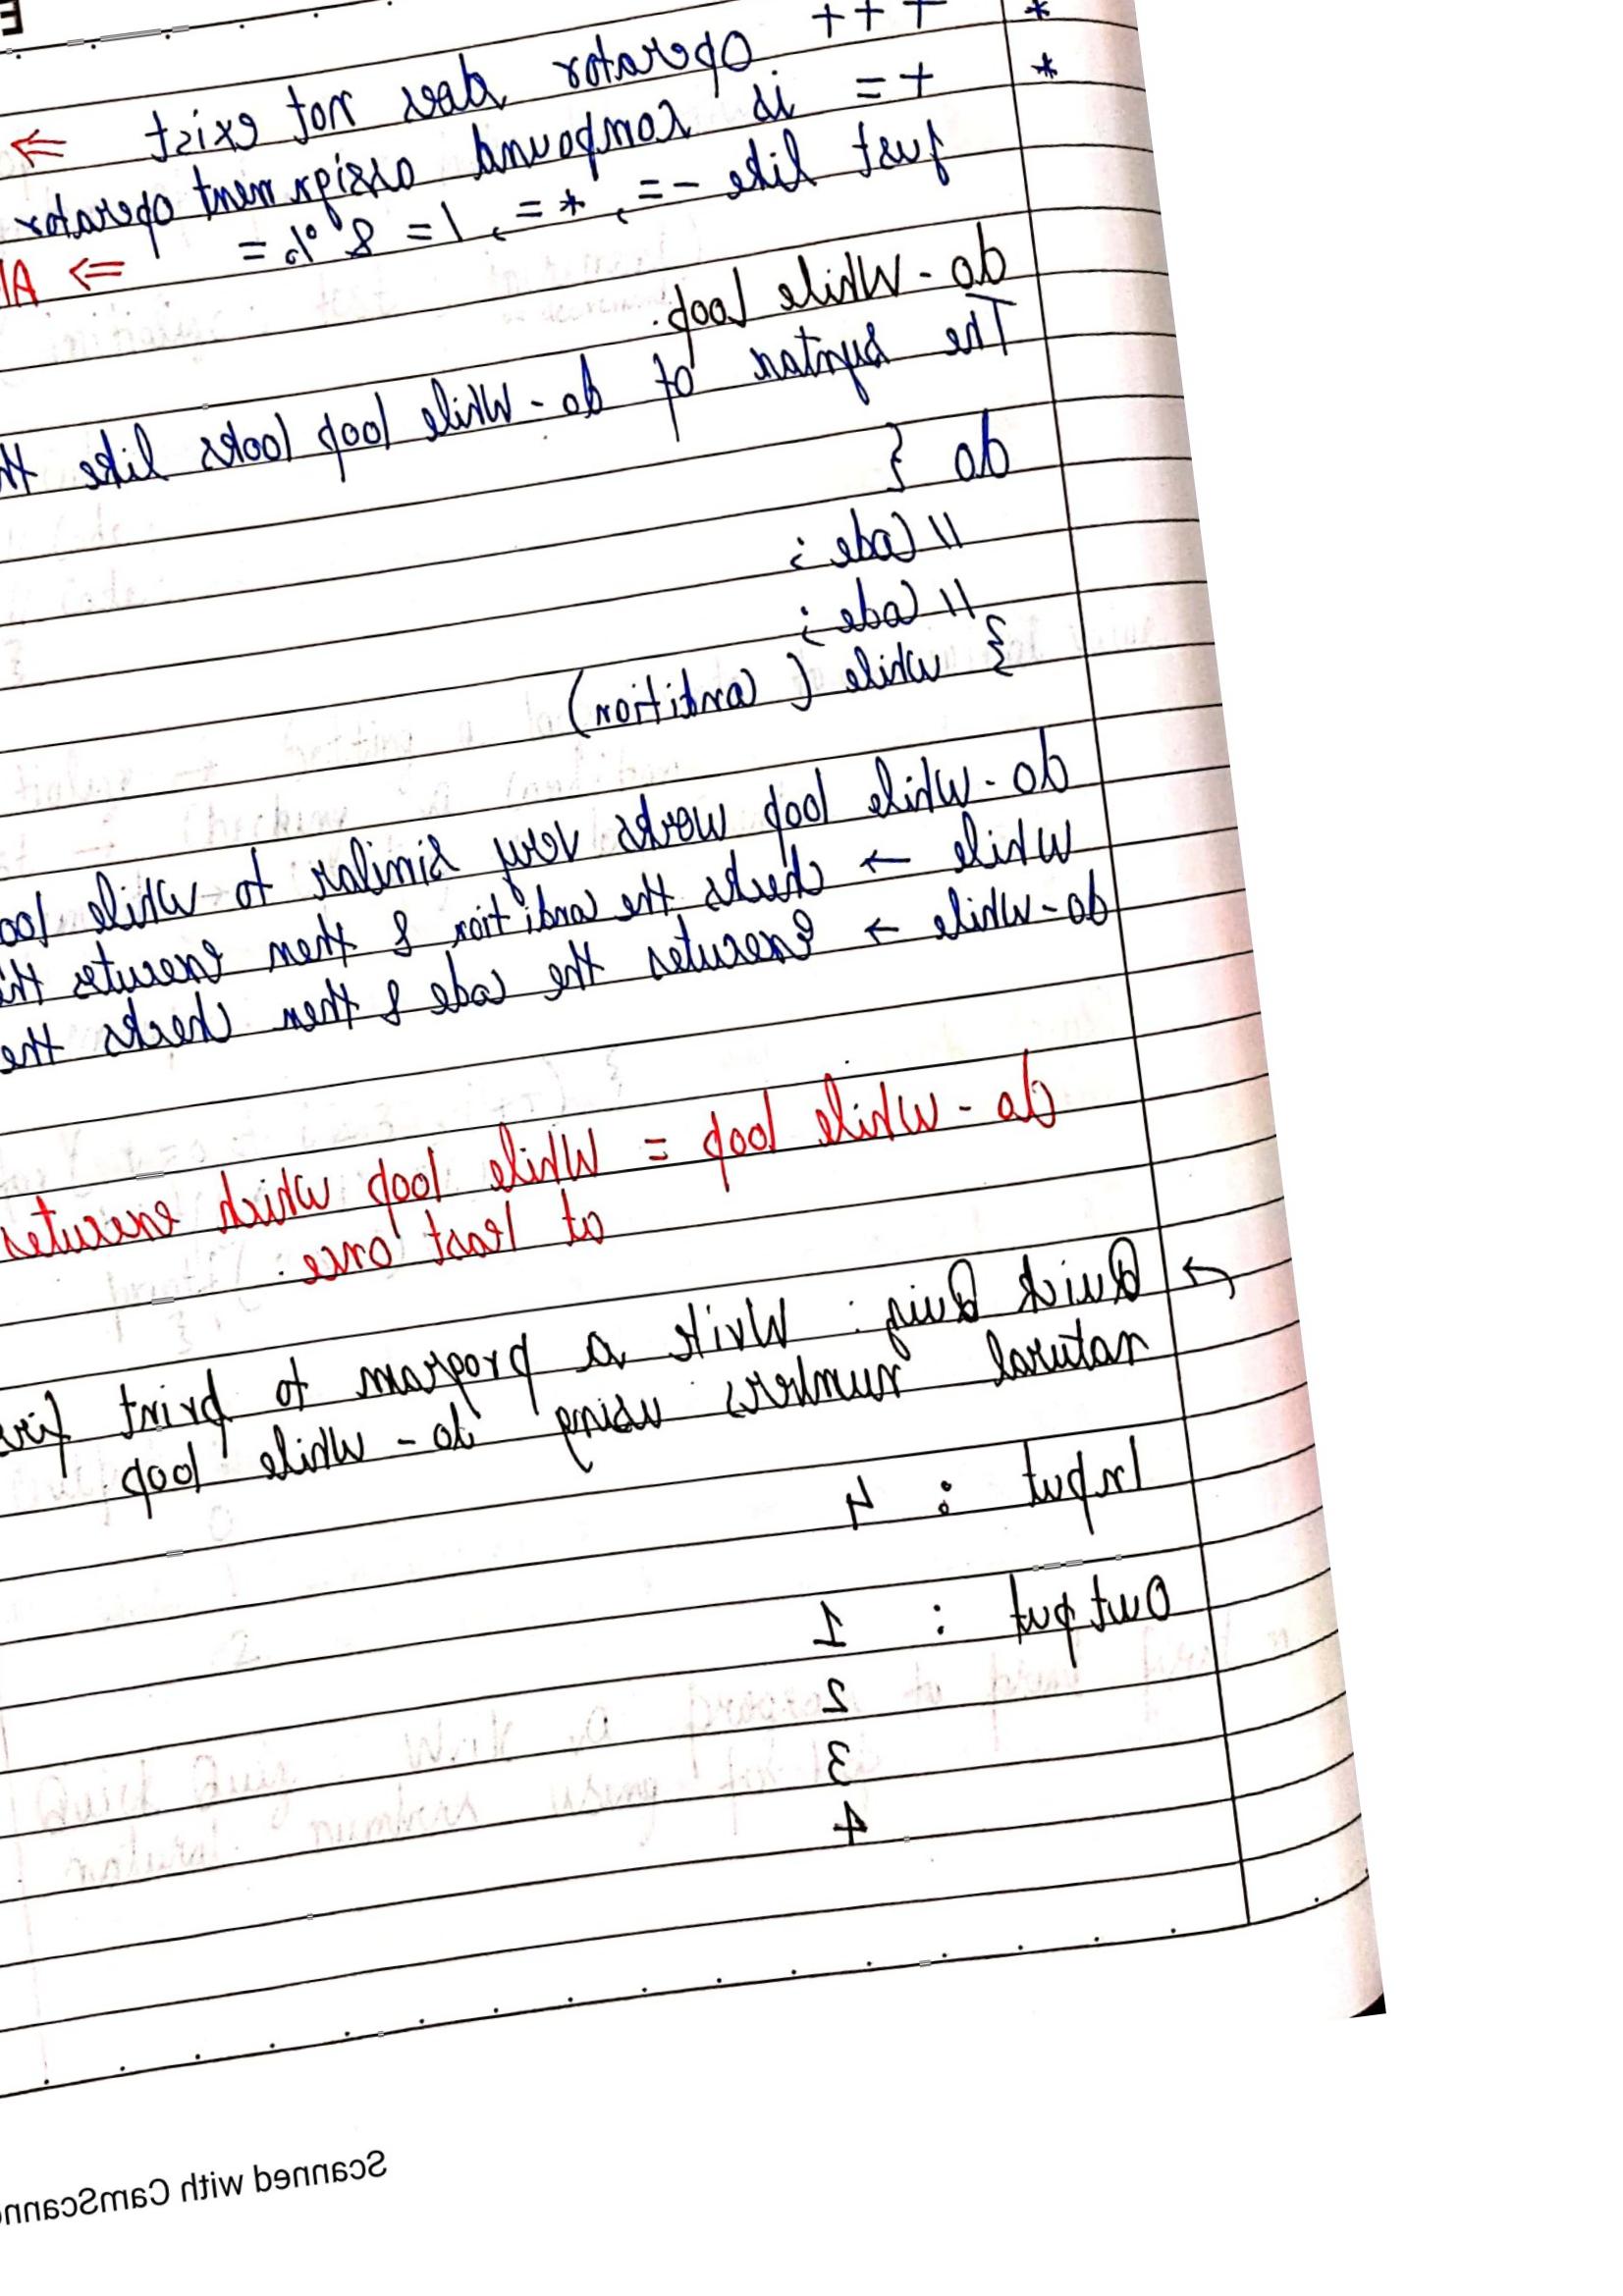 * + + +
Operator does not exist ⇒
* += is compound assignment operator
just like -=, *=, /= & %= ⇒
do-while loop.
The syntax of do-while loop looks like
do {
// Code;
// Code;
} while (condition)
do-while loop works very similar to while
while → checks the condition & then executes
do-while → Executes the code & then checks the
do-while loop = While loop which
at least once.
→ Quick Quiz: Write a program to print
natural numbers using do-while loop.
Input : 4
Output : 1
2
3
4
Scanned with